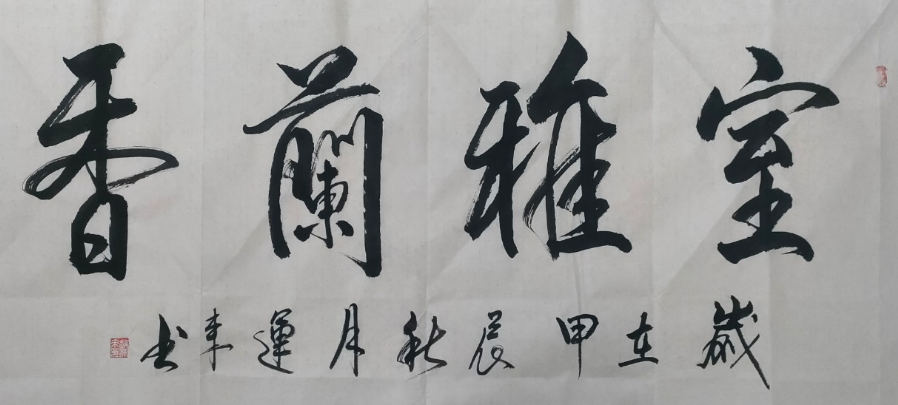 室雅蘭香
歲在甲辰秋月運來书